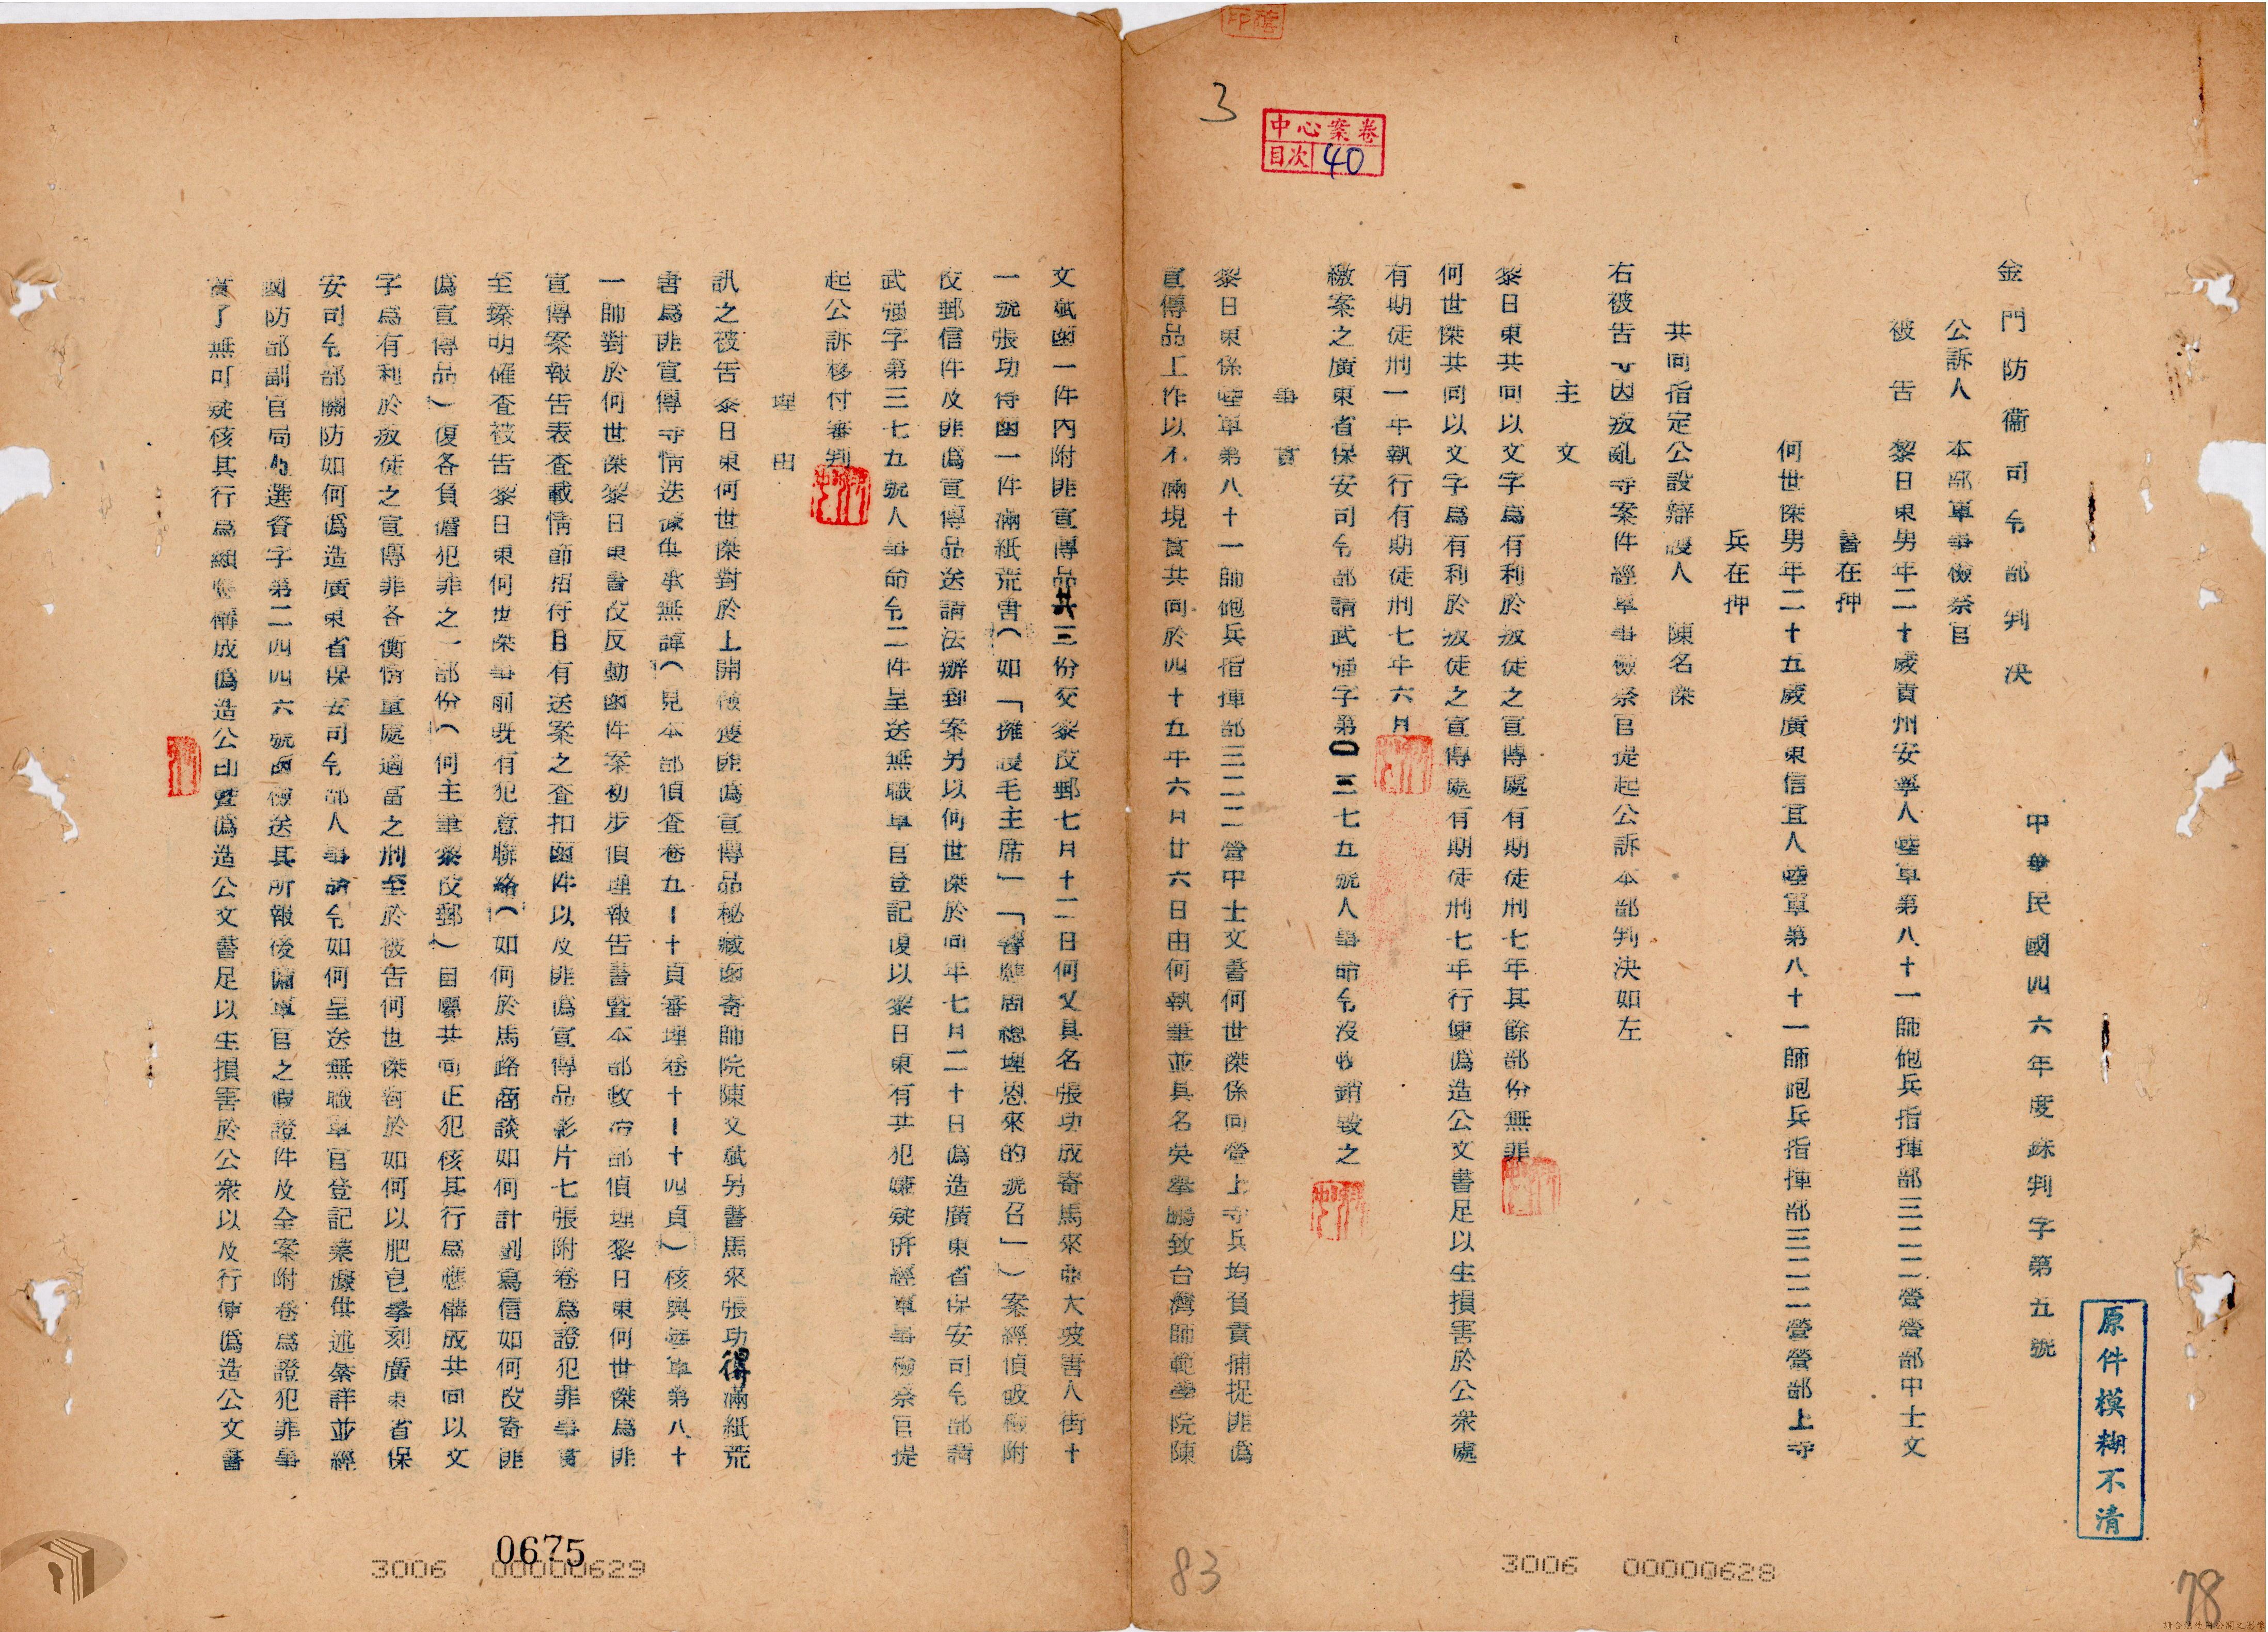 金門防衛司令部判決
中華民國四六年度誅判字第五號
公訴人 本部軍事檢察官
被告 黎日東男年二十歲貴州安寧人陸軍第八十一師砲兵指揮部三二二營營部中士文
書在押
何世傑男年二十五歲廣東信宜人陸軍第八十一師砲兵指揮部三二二營營部上等
兵在押
共同指定公設辯護人 陳名傑
右被告等因叛亂等案件經軍事檢察官提起公訴本部判決如左
主文
黎日東共同以文字為有利於叛徒之宣傳處有期徒刑七年其餘部份無罪
何世傑共同以文字為有利於叛徒之宣傳處有期徒刑七年行使偽造公文書足以生損害於公衆處
有期徒刑一年執行有期徒刑七年六月
繳案之廣東省保安司令部請武强字第〇三七五號人事命令沒收銷毀之
事實
黎日東係陸軍第八十一師砲兵指揮部三二二營中士文書何世傑係同營上等兵均負責捕捉匪偽
宣傳品工作以不滿現實共同於四十五年六月廿六日由何執筆並具名吳擧鵬致台灣師範學院陳
文斌函一件內附匪宣傳品共三份交黎投郵七月十二日何又具名張功成寄馬來亞大坡害人街十
一號張功待函一件滿紙荒書(如「擁護毛主席」「響應周總理恩來的號召」)案經偵破檢附
投郵信件及匪偽宣傳品送請法辦到案另以何世傑於同年七月二十日偽造廣東省保安司令部請
武强字第三七九號人事命令二件呈送無職軍官登記復以黎日東有共犯嫌疑併經軍事檢察官提
起公訴移付審判
理由
訊之被告黎日東何世傑對於上開檢獲匪偽宣傳品秘藏函寄師院陳文斌另書馬來張功得滿紙荒
書為匪宣傳等情迭據供承無諱(見本部偵查卷五—十頁審理卷十—十四頁)核與陸軍第八十
一師對於何世傑黎日東書投反動函件案初步偵理報告書暨本部政治部偵理黎日東何世傑為匪
宣傳案報告表查載情節相符且有送案之查扣函件以及匪偽宣傳品影片七張附卷為證犯罪事實
至臻明確查被告黎日東何世傑事前既有犯意聯絡(如何於馬路商談如何計劃寫信如何投寄匪
偽宣傳品)復各負擔犯罪之一部份(何主筆黎投郵)自屬共同正犯核其行為應構成共同以文
字為有利於叛徒之宣傳罪各衡情量處適當之刑至於被告何世傑對於如何以肥皂摹刻廣東省保
安司令部關防如何偽造廣東省保安司令部人事命令如何呈送無職軍官登記業據供述綦詳並經
國防部副官局均選資字第二四四六號函檢送其所報後備軍官之假證件及全案附卷為證犯罪事
實了無可疑核其行為顯係構成偽造公印暨偽造公文書足以生損害於公衆以及行使偽造公文書
中心案卷
目次 40
3
原件模糊不清
83
78
0675
3006 00000629
3006 00000628